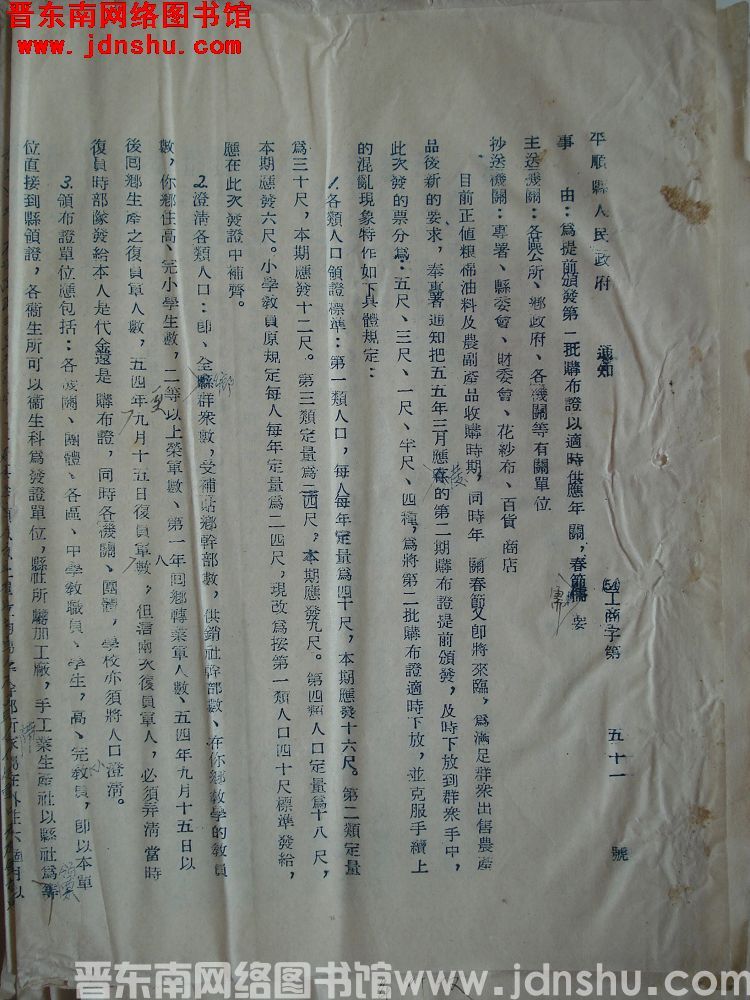 晋东南网络图书馆
www.jdnshu.com
平順縣人民政府 通知 (54)工商字第 五十一 號
事 由：為提前頒發第二批購布證以適時供應年關，春節需要
主送機關：各區公所、鄉政府、各機關等有關單位
抄送機關：專署、縣委會、財委會、花紗布、百貨商店
目前正值粮棉油料及農副產品收購時期，同時年關春節又即將來臨，為滿足群衆出售農產
品後新的要求，奉專署通知把五五年三月應發的第二期購布證提前頒發，及時下放到群衆手中，
此次發的票分為：五尺、三尺、一尺、半尺、四種，為將第二批購布證適時下放，並克服手續上
的混亂現象特作如下具體規定：
1.各類人口領證標準：第一類人口，每人每年定量為四十尺，本期應發十六尺。第二類定量
為三十尺，本期應發十二尺。第三類定量為二四尺，本期應發九尺。第四類人口定量為十八尺，
本期應發六尺。小學教員原規定每人每年定量為二四尺，現改為按第一類人口四十尺標準發給，
應在此次發證中補齊。
2.澄清各類人口：即、全鄉群衆數，受補貼鄉幹部數，供銷社幹部數、在你鄉教學的教員
數，你鄉住高、完小學生數，二等以上榮軍數、第一年回鄉轉業軍人數、五四年九月十五日以
後回鄉生產之復員軍人數，五四年九月十五日復員軍數，但這兩次復員軍人，必須弄清當時
復員時部隊發給本人是代金還是購布證，同時各機關、團體，學校亦須將人口澄清。
3.領布證單位應包括：各機關、團體、各區、中學教職員、學生，高、完小教員，即以本單
位直接到縣領證，各衛生所可以衛生科為發證單位，縣社所屬加工廠，手工業生產社以縣社為領
晋东南网络图书馆 www.jdnshu.com